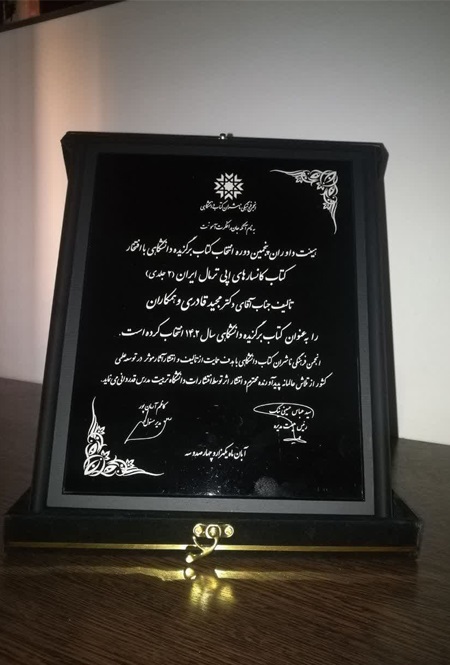 انجمن فرهنگی ناشران کتاب دانشگاهی
به نام آنکه جان را فکرت آموخت
هیئت داوران پنجمین دوره انتخاب کتاب برگزیده دانشگاهی با افتخار
کتاب کانسارهای اپی ترمال ایران (۲ جلدی)
تالیف جناب آقای دکتر مجید قادری و همکاران
را به عنوان کتاب برگزیده دانشگاهی سال ۱۴۰۲ انتخاب کرده است.
انجمن فرهنگی ناشران کتاب دانشگاهی با هدف حمایت از تالیف و انتشار آثار موثر در توسعه علمی
کشور از تلاش عالمانه پدیدآورنده محترم و انتشار اثر توسط انتشارات دانشگاه تربیت مدرس قدردانی می نماید.
سید عباس حسینی نیک
رئیس هیئت مدیره
کاظم آرمان پور
مدیر مسئول
آبان ماه یکهزار و چهارصد و سه